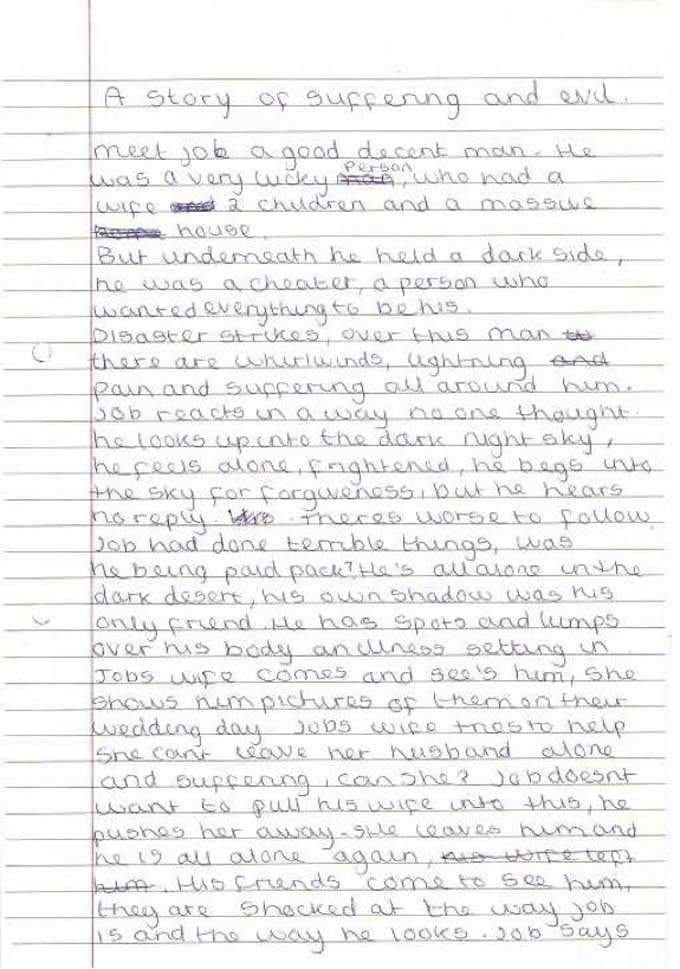 A story of suffering and evil.
meet job a good decent man. He
was a very lucky person, who had a
wife 2 children and a massive
house.
But underneath he held a dark side,
he was a cheater, a person who
wanted everything to be his.
Disaster strikes, over this man
there are whirlwinds, lightning and
pain and suffering all around him.
Job reacts in a way no one thought.
he looks up into the dark night sky,
he feels alone, frightened, he begs into
the sky for forgiveness, but he hears
no reply. theres worse to follow.
Job had done terrible things, was
he being paid pack? He's all alone in the
dark desert, his own shadow was his
only friend. He has spots and lumps
over his body an illness setting in
Jobs wife comes and see's him, she
shows him pictures of them on their
wedding day. Jobs wife tries to help
she cant leave her husband alone
and suffering, can she? Job doesnt
want to pull his wife into this, he
pushes her away. she leaves him and
he is all alone again, his wife left
him. His friends come to see him,
they are shocked at the way job
is and the way he looks. Job says